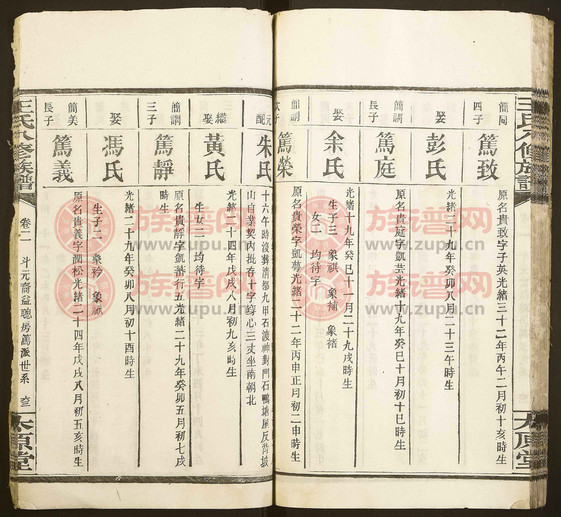 王氏八修族譜
太原堂
簡闻
四子
篤致
原名貴致字子英光緒三十二年丙午二月初十亥時生
娶
彭氏
光緒二十九年癸卯八月二十三午時生
簡調
長子
篤庭
原名貴庭字凱芸光緒十九年癸巳十月初十巳時生
娶
余氏
光緒十九年癸巳十一月二十九戌時生
生子三 象祺 象補 象禧
女二 均待字
簡調
次子
篤榮
原名貴榮字凱萼光緒二十二年丙申正月初二申時生
元配
朱氏
十六午時没葬清鄉九甲石渡神對門石鴨塘尾反背坡
山自業契內批存十字穿心三丈坐南朝北
光緒二十四年戊戌八月初九亥時生
繼娶
黃氏
生女二 均待字
簡調
三子
篤靜
原名貴靜字凱蕃行五光緒二十九年癸卯五月初七戌
時生
娶
馮氏
光緒二十九年癸卯八月初十酉時生
生子二 象衿 象福
簡美
長子
篤義
原名貴義字潤松光緒二十四年戊戌八月初五亥時生
王氏八修族譜
卷二 斗元齋益聰房篤派世系
太原堂
族谱网
www.zupu.cn
族谱网
www.zupu.cn
族谱网
www.zupu.cn
族谱网
www.zupu.cn